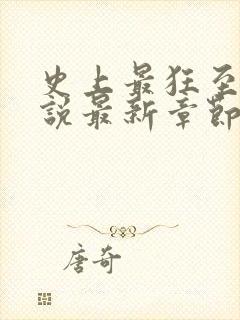 史上最狂至
說最新章節
唐奇